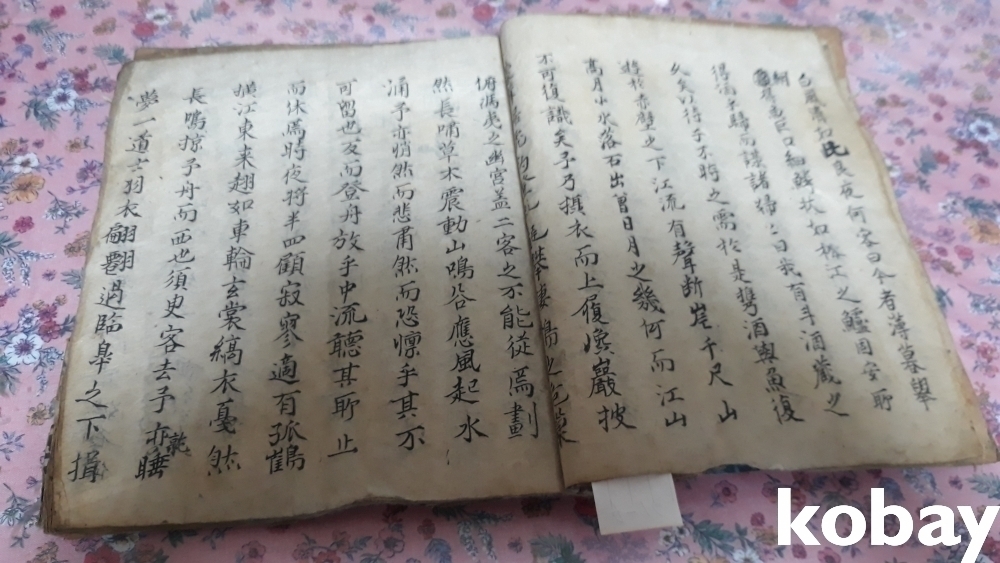 風清如民良夜何客曰今者薄暮擧
網得魚巨口細鱗狀如松江之鱸固安所
得酒乎歸而謀諸婦〻曰我有斗酒藏之
久矣以待子不時之需於是携酒與魚復
遊於赤壁之下江流有聲斷岸千尺山
高月小水落石出曾日月之幾何而江山
不可復識矣予乃攝衣而上履巉巖披
俯馮夷之幽宮盖二客之不能從焉劃
然長嘯草木震動山鳴谷應風起水
涌予亦悄然而悲甫然而恐懍乎其不
可留也反而登舟放乎中流聽其所止
而休焉時夜將半四顧寂寥適有孤鶴
橫江東來翅如車輪玄裳縞衣戛然
長鳴掠予舟而西也須臾客去予亦就睡
夢一道士羽衣翩翩過臨皐之下揖
kobay